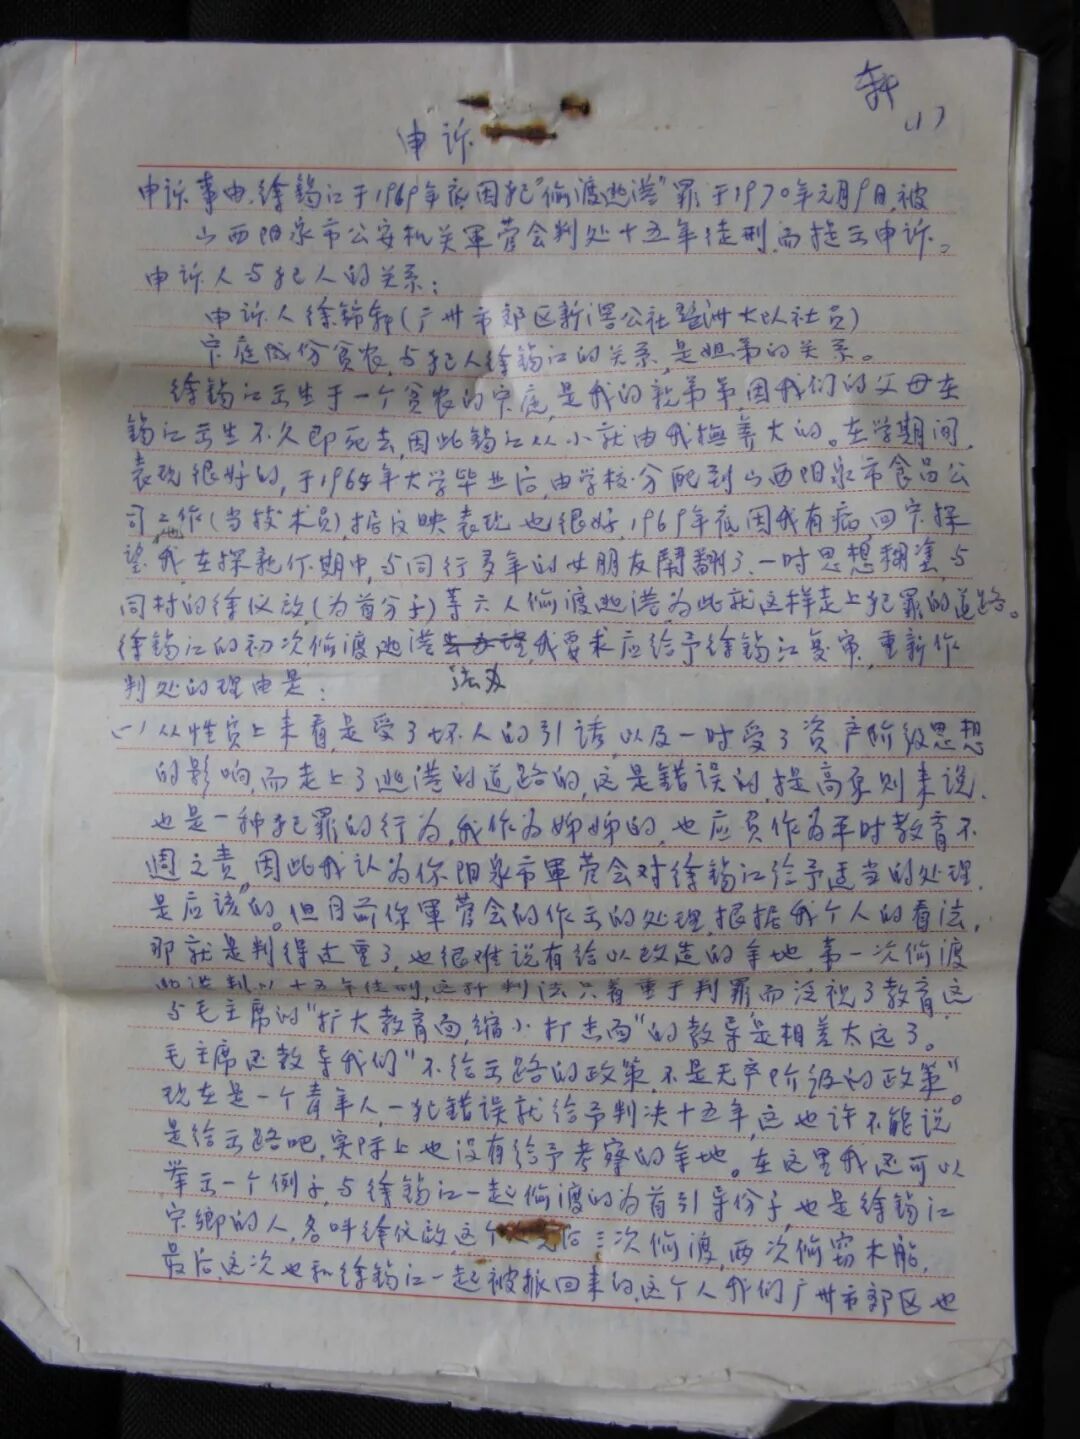 (1)
申诉
申诉事由:徐锡江于1969年底因犯"偷渡逃港"罪于1970年元月9日,被
山西阳泉市公安机关軍管会判处十五年徒刑而提出申诉。
申诉人与犯人的关系:
申诉人徐锦郭(广州市郊区新滘公社琶洲大队社员)
家庭成份贫农,与犯人徐锡江的关系,是姐弟的关系。
徐锡江出生于一个贫农的家庭,是我的親弟弟,因我们的父母在
锡江出生不久即死去,因此锡江从小就由我撫养大的。在学期间,
表现很好的,于1965年大学毕业后,由学校分配到山西阳泉市食品公
司工作(当技术员),据反映表现也很好,1969年底因我有病,回家探
望我,在探親假期中,与同行多年的女朋友鬧翻了,一时思想糊塗,与
同村的徐仪啟(为首分子)等六人偷渡逃港,为此就这样走上犯罪的道路。
徐锡江的初次偷渡逃港我要求应给予徐锡江复审,重新作
法办
判处的理由是:
(一)从性质上来看,是受了坏人的引诱,以及一时受了资产阶级思想
的影响,而走上了逃港的道路的,这是錯误的,提高原则来说,
也是一种犯罪的行为,我作为姊姊的,也应负作为平时教育不
週之责,因此我认为你阳泉市軍管会对徐锡江给予适当的处理,
是应该的。但目前你軍管会的作出的处理,根据我个人的看法,
那就是判得过重了,也很难说有给以改造的余地,第一次偷渡
逃港判以十五年徒刑,这种判法只着重于判罪而泛视了教育,这
与毛主席的"扩大教育面,缩小打击面"的教导是相差太远了。
毛主席还教导我们"不给出路的政策,不是无产阶级的政策"。
现在是一个青年人,一犯错误就给予判决十五年,这也许不能说
是给出路吧,实际上也没有给予考察的余地。在这里我还可以
举出一个例子,与徐锡江一起偷渡的为首引导份子,也是徐锡江
家鄉的人,名叫徐仪啟,这个后三次偷渡,两次偷窃木船,
最后这次也和徐锡江一起被抓回来的,这个人我们广州市郊区也